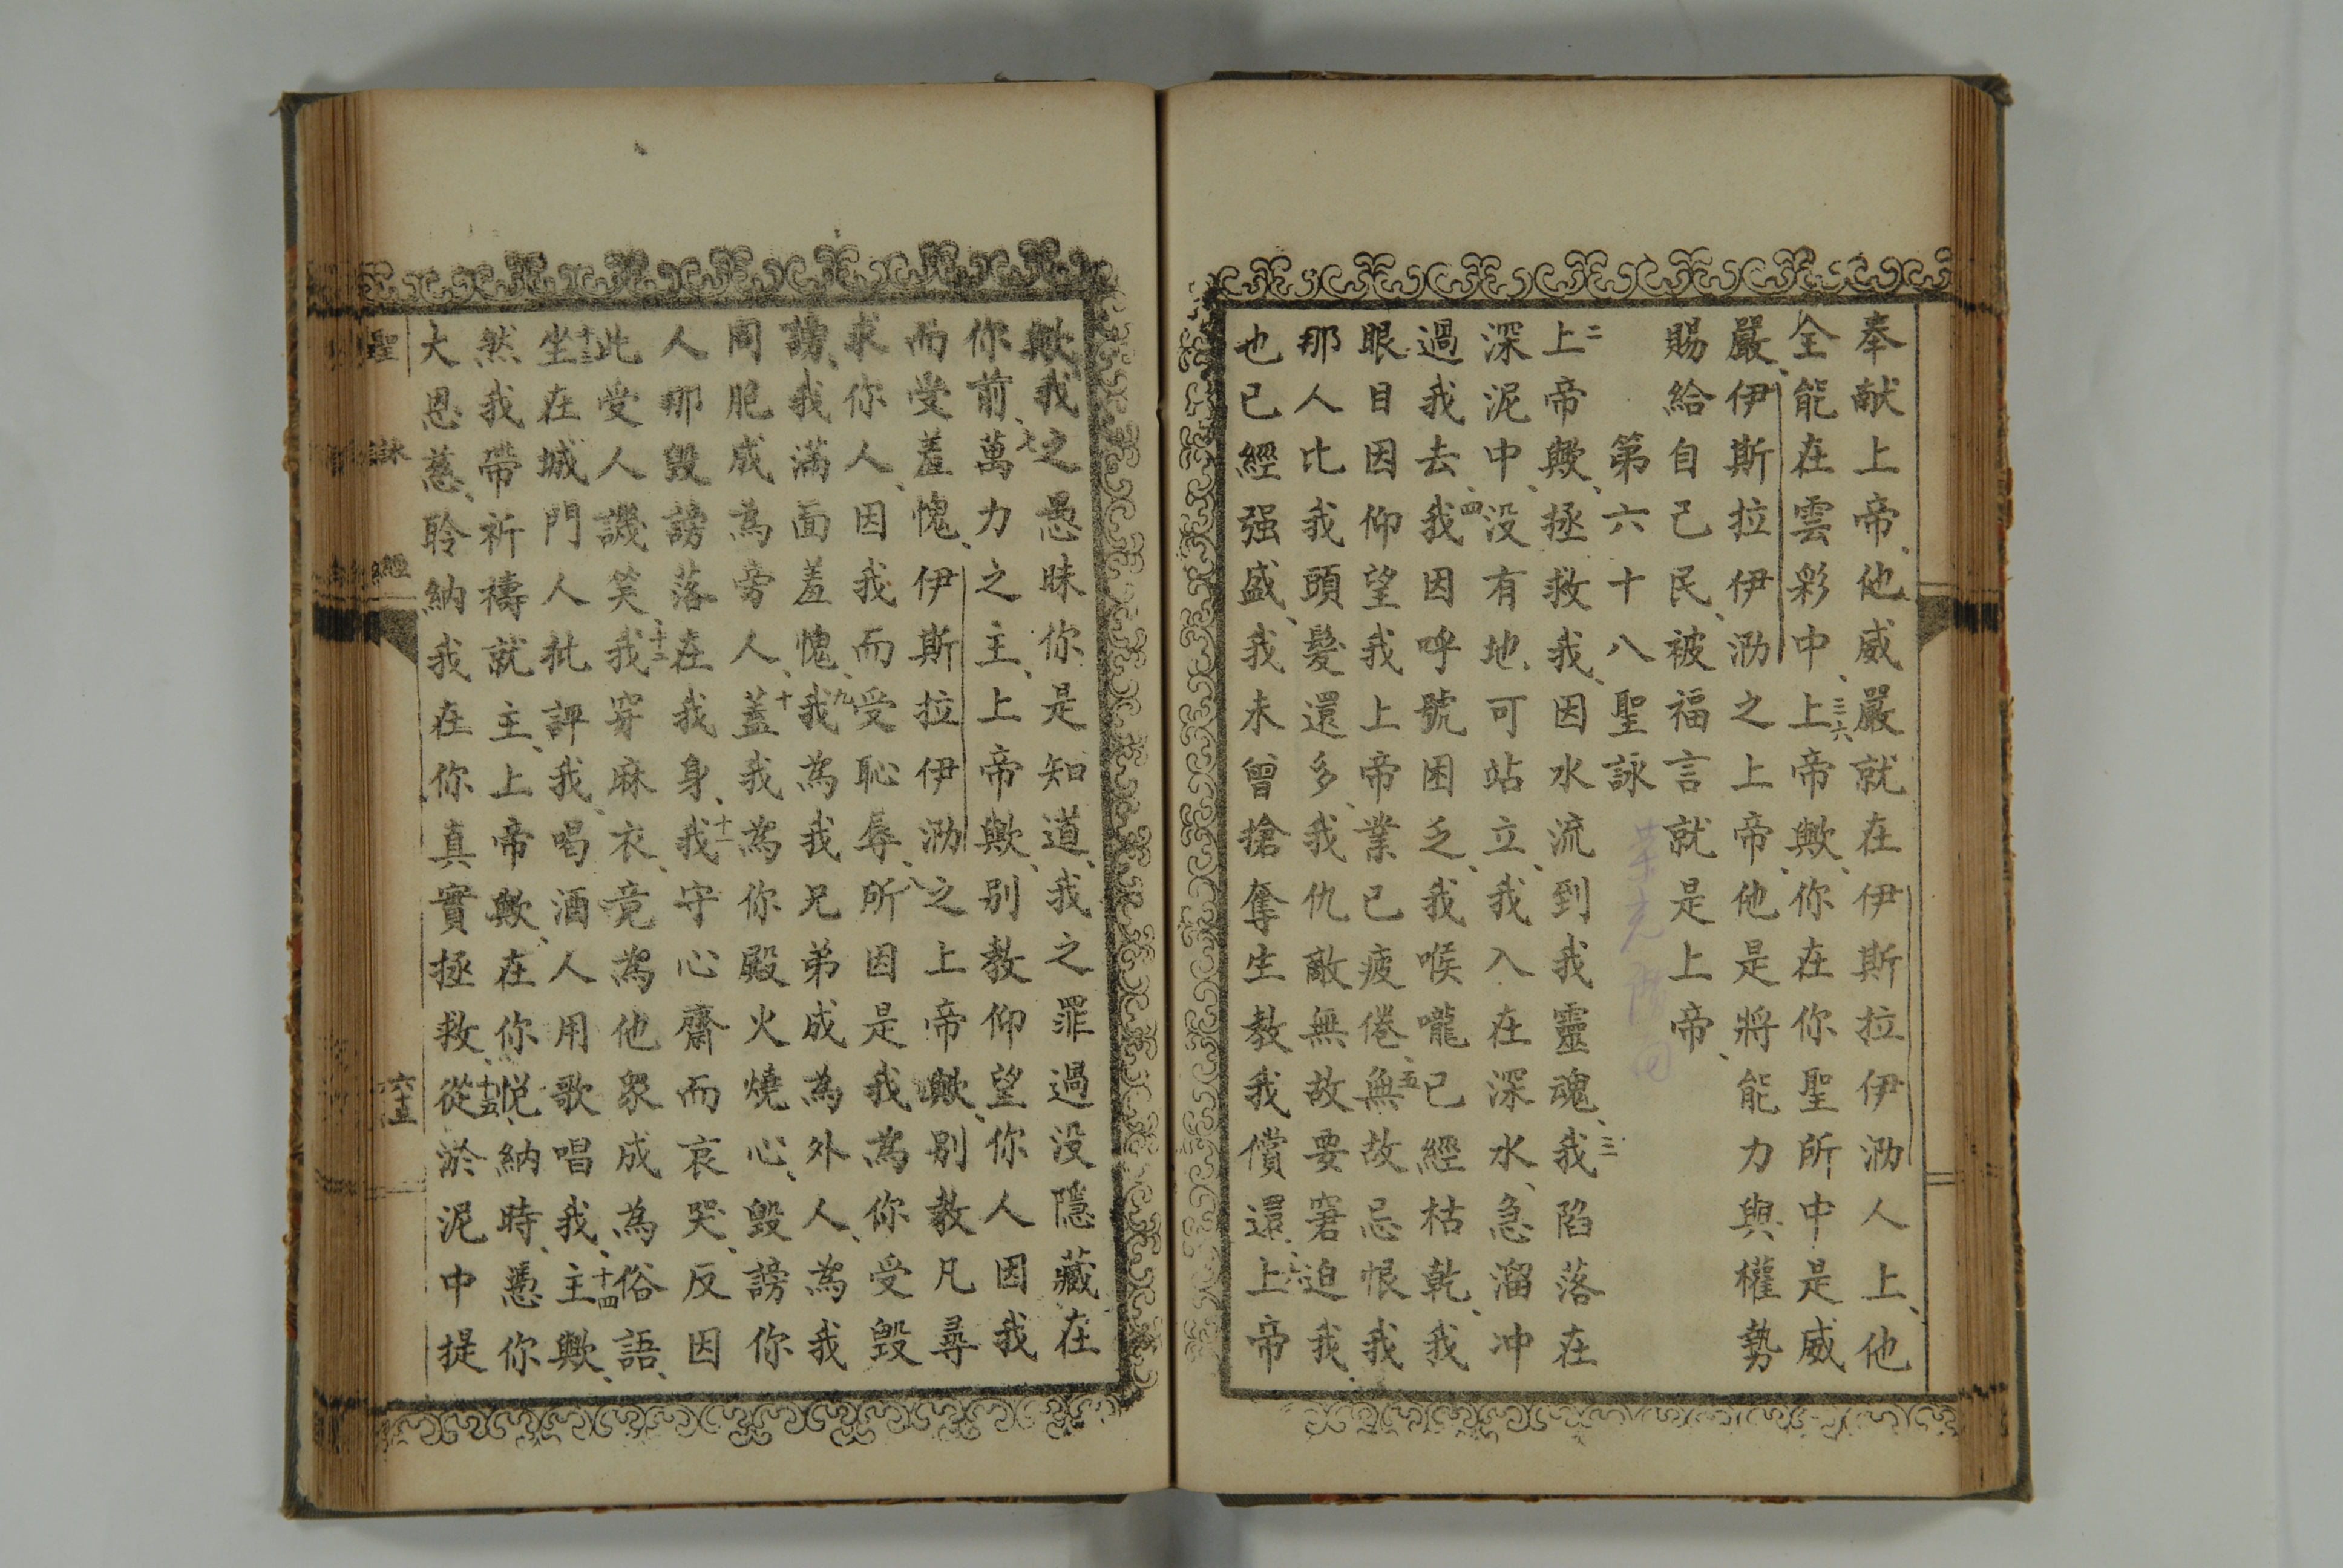 奉献上帝、他威嚴就在伊斯拉伊泐人上、他
全能在雲彩中、三六上帝歟、你在你聖所中是威
嚴、伊斯拉伊泐之上帝、他是將能力與權勢
賜給自己民、被福言就是上帝、
第六十八聖詠
二上帝歟、拯救我、因水流到我靈魂、三我陷落在
深泥中、没有地可站立、我入在深水、急溜冲
過我去、四我因呼號困乏、我喉嚨已經枯乾、我
眼目因仰望我上帝業已疲倦、五無故忌恨我
那人比我頭髮還多、我仇敵無故要窘迫我、
也已經强盛、我未曾搶奪生教我償還、六上帝
歟、我之愚昧你是知道、我之罪過没隱藏在
你前、七萬力之主、上帝歟、别教仰望你人因我
而受羞愧、伊斯拉伊泐之上帝歟、别教凡尋
求你人、因我而受恥辱、八所因是我為你受毁
謗、我滿面羞愧、九我為我兄弟成為外人、為我
同胞成為旁人、十蓋我為你殿火燒心、毁謗你
人那毁謗落在我身、十一我守心齋而哀哭、反因
此受人譏笑、十二我穿麻衣、竟為他衆成為俗語、
十三坐在城門人批評我、喝酒人用歌唱我、十四主歟、
然我帶祈禱就主、上帝歟、在你悦納時、憑你
大恩慈、聆納我在你真實拯救、十五從淤泥中提
聖詠經